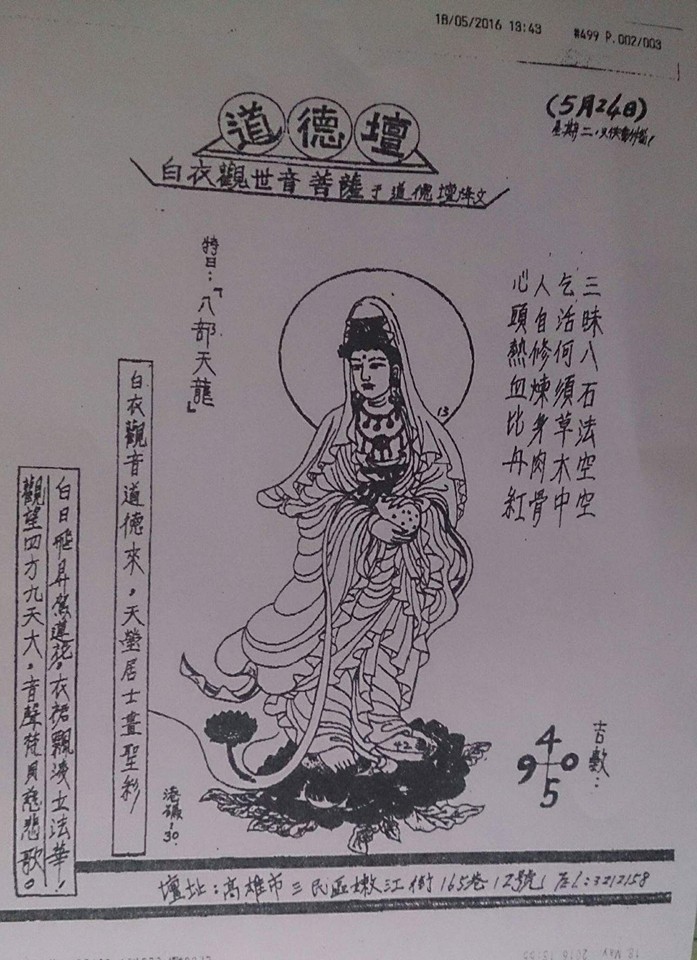 18/05/2016 13:43 #499 P.002/003
(5月24日)
星期二
道德壇
白衣觀世音菩薩于道德壇降文
三昧八石法空空
乞活何須草木中
人自修煉身肉骨
心頭熱血比丹紅
特曰:「八部天龍」
白衣觀音道德來,天瑩居士畫聖彩
白日飛昇
衣裙飄
士法華,
觀望四方九天大,音聲梵貝慈悲歌。
13
42
港號:30
吉數:
4
9 0
5
壇址:高雄市三民區嫩江街165巷12號 Tel:3212158